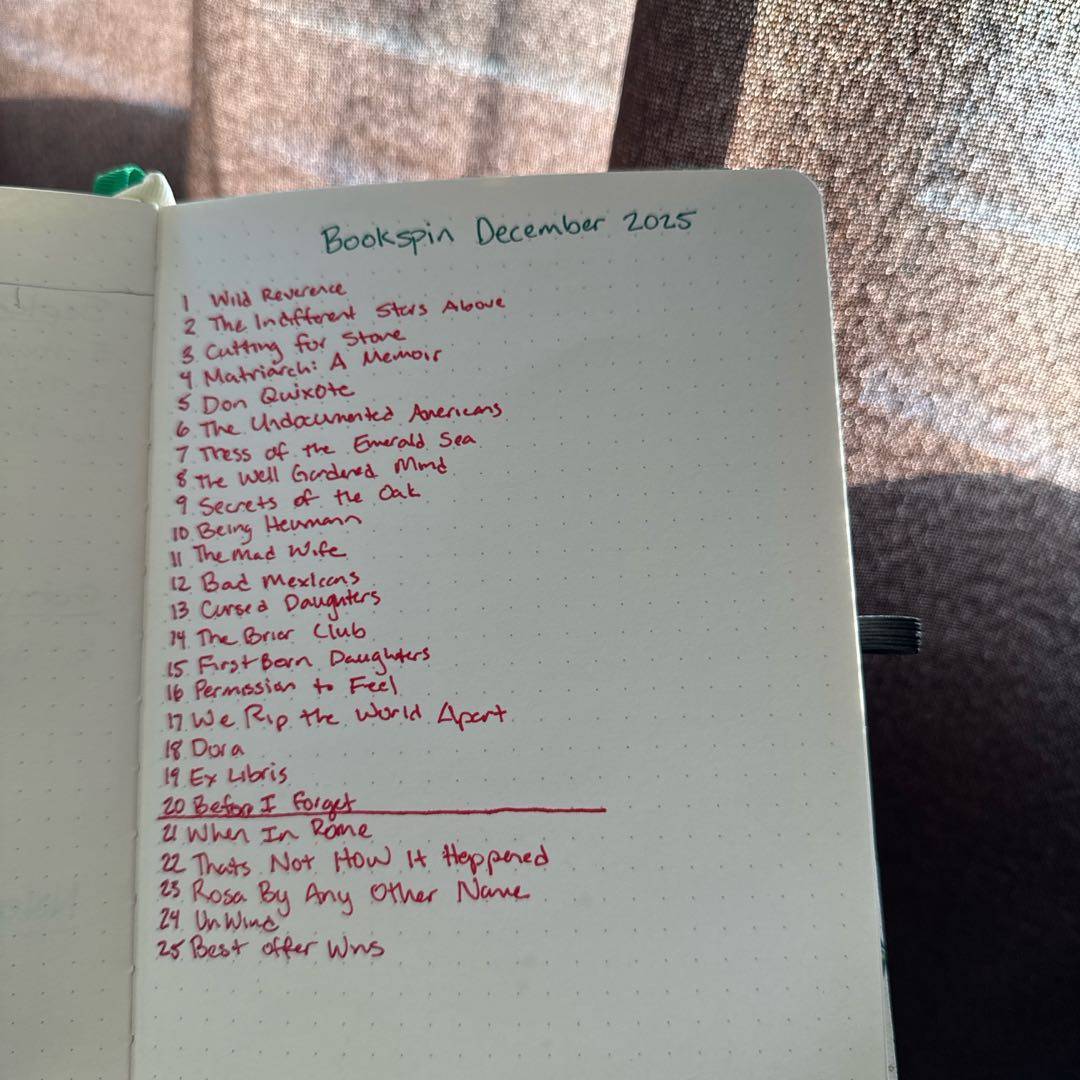 Bookspin December 2025
1 Wild Reverence
2 The Indifferent Stars Above
3 Cutting for Stone
4 Matriarch: A Memoir
5 Don Quixote
6 The Undocumented Americans
7 Tress of the Emerald Sea
8 The Well Gardened Mind
9 Secrets of the Oak
10 Being Heumann
11 The Mad Wife
12 Bad Mexicans
13 Cursed Daughters
14 The Briar Club
15 First Born Daughters
16 Permission to Feel
17 We Rip the World Apart
18 Dora
19 Ex Libris
20 Before I Forget
21 When In Rome
22 Thats Not How It Happened
23 Rosa By Any Other Name
24 UnWind
25 Best offer Wins